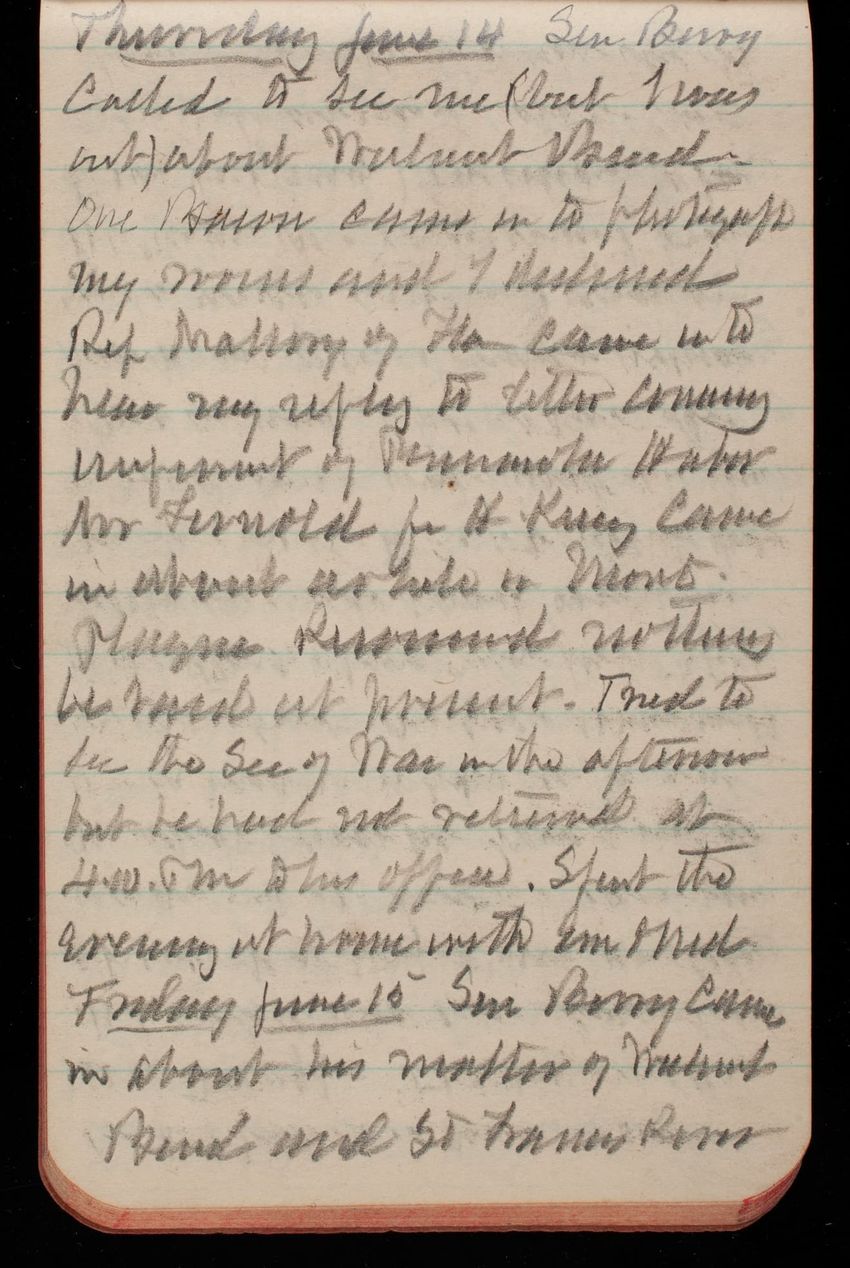 Thursday June 14 Sen Berry
Called to see me (but I was
out) about Walnut Bend.
One Bacon came in to photograph
my rooms and I declined
Rep Mallory of Fla came in to
hear my reply to letter concerning
improvement of Pensacola Harbor
Mr Fernold for H King Came
in about
Reservoirs nothing
be at present. Tried to
see the Sec of War in the afternoon
but he had not returned at
4.10. PM to his office. Spent the
evening at home with Em & Ned
Friday June 15 Sen Berry Came
in about his matter of Walnut
Bend and St Francis River